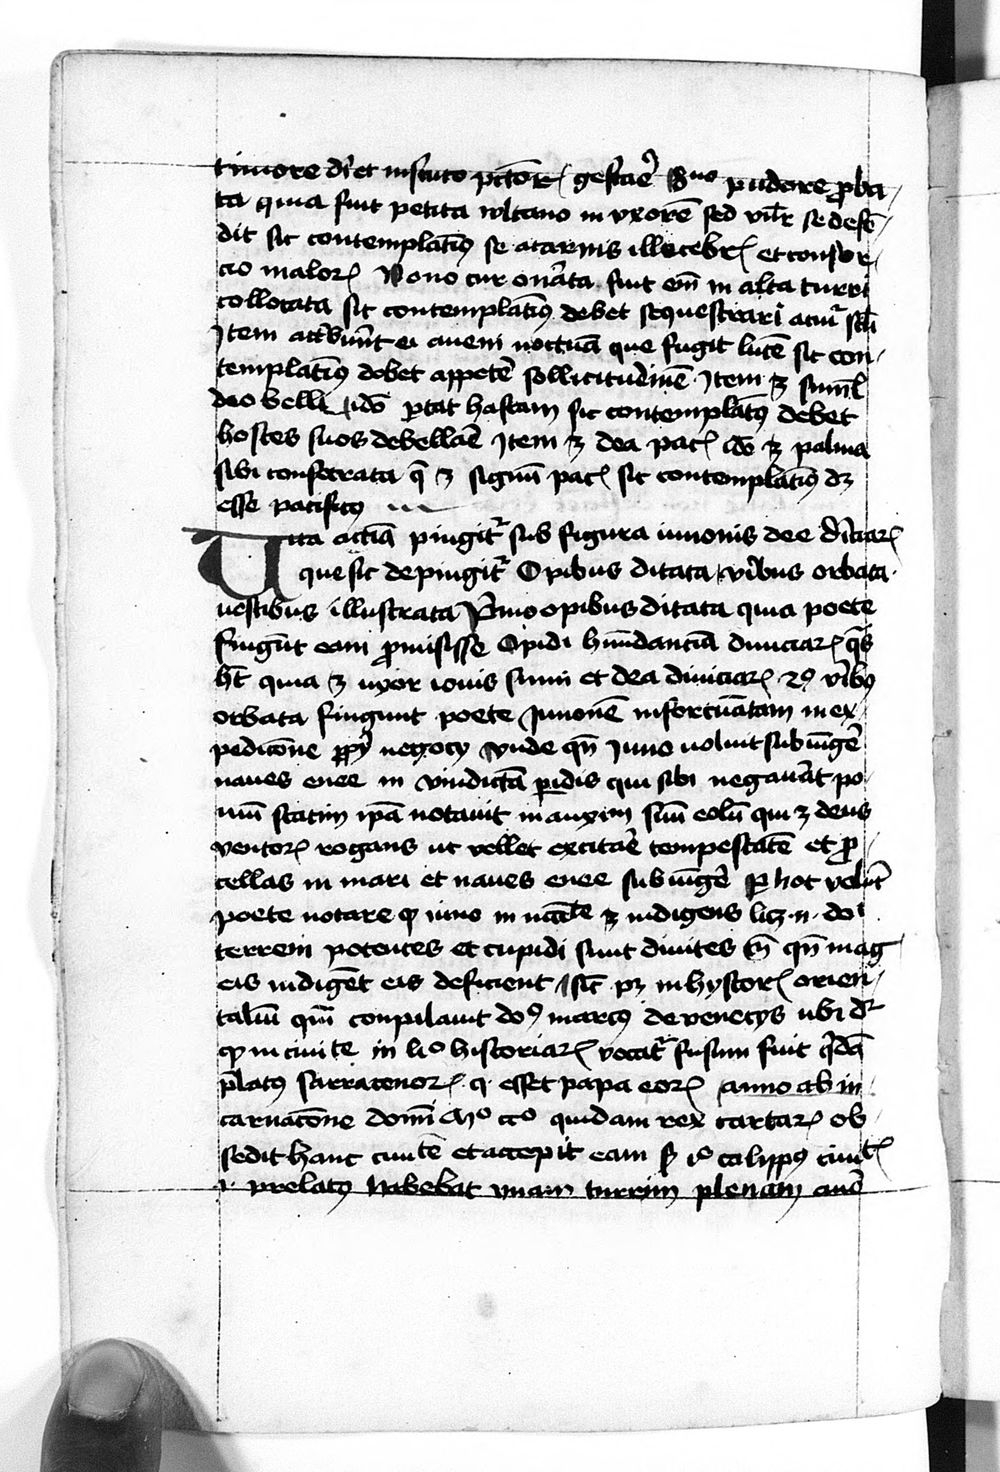 timore dei et in scuto pectoris gestare Secundo pudore proba
ta quia fuit petita wlcano in vxorem sed viriliter se defen
dit sic contemplatiuus se a carnis illecebris et consor
cio malorum turri
collocata sic contemplatiuus debet sequestrari
Item attribuunt ei auem noctuam que fugit lucem sic con
templatiuus debet appetere sollicitudinem Item est
dea belli ideo portat hastam sic contemplatiuus debet
hostes suos debellare Item est dea pacis ideo est palma
sibi consecrata que est signum pacis sic contemplatiuus debet
esse pacificus
Vita actiua pingitur sub figura iunonis dee diuiciarum
que sic depingitur Opibus ditata viribus orbata
vestibus illustrata Primo opibus ditata quia poete
fingunt eam promisisse habundanciam diuiciarum quas
habet quia est uxor iouis summi et dea diuiciarum 2us viribus
orbata fingunt poete Iunonem infortunatam in ex
pedicione proprii negocy Vnde quando Iuno uoluit submergere
naues enee in vindictam paridis qui sibi negauerat po
mum statim ipsa uocauit in auxilium suum eolum qui est deus
ventorum rogans ut vellet excitare tempestatem et pro
cellas in mari et naues enee submergere Per hoc volunt
poete notare quod iuno in necessitate est indigens licet enim
terreni potentes et cupidi sunt diuites tamen quando mag
eis indigent eis deficient sicut patet in hystoriis orien
talium quam conpilauit dominus marcus de venecys ubi dicitur
quod in ciuitate in libro historiarum vocatur fusum fuit quidam
prelatus sarracenorum quasi esset papa eorum anno ab in
carnacione domini Mo cco quidam rex tartarorum ob
sedit hanc ciuitatem et accepit eam Sed iste calypus ciuitatis
.i. prelatus habebat vnam turrim plenam auro